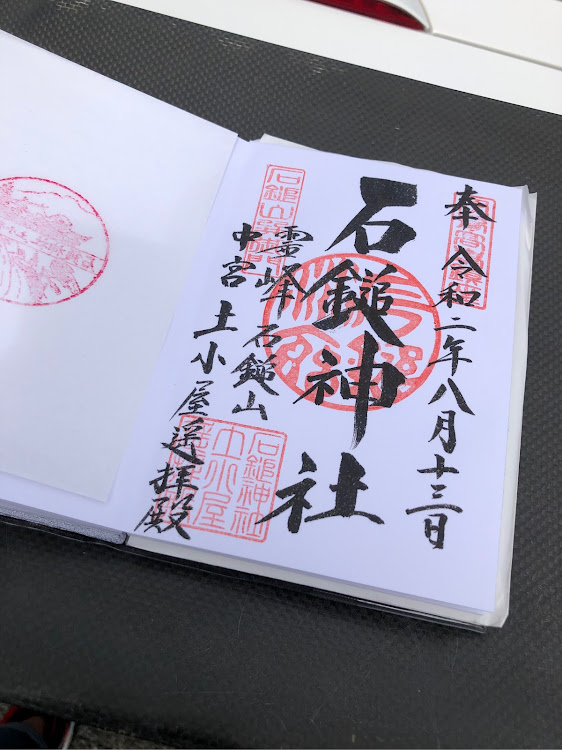 奉
令和二年八月十三日
石鎚神社
霊峰 石鎚山
中宮 土小屋遥拝殿
石鎚神社
土小屋